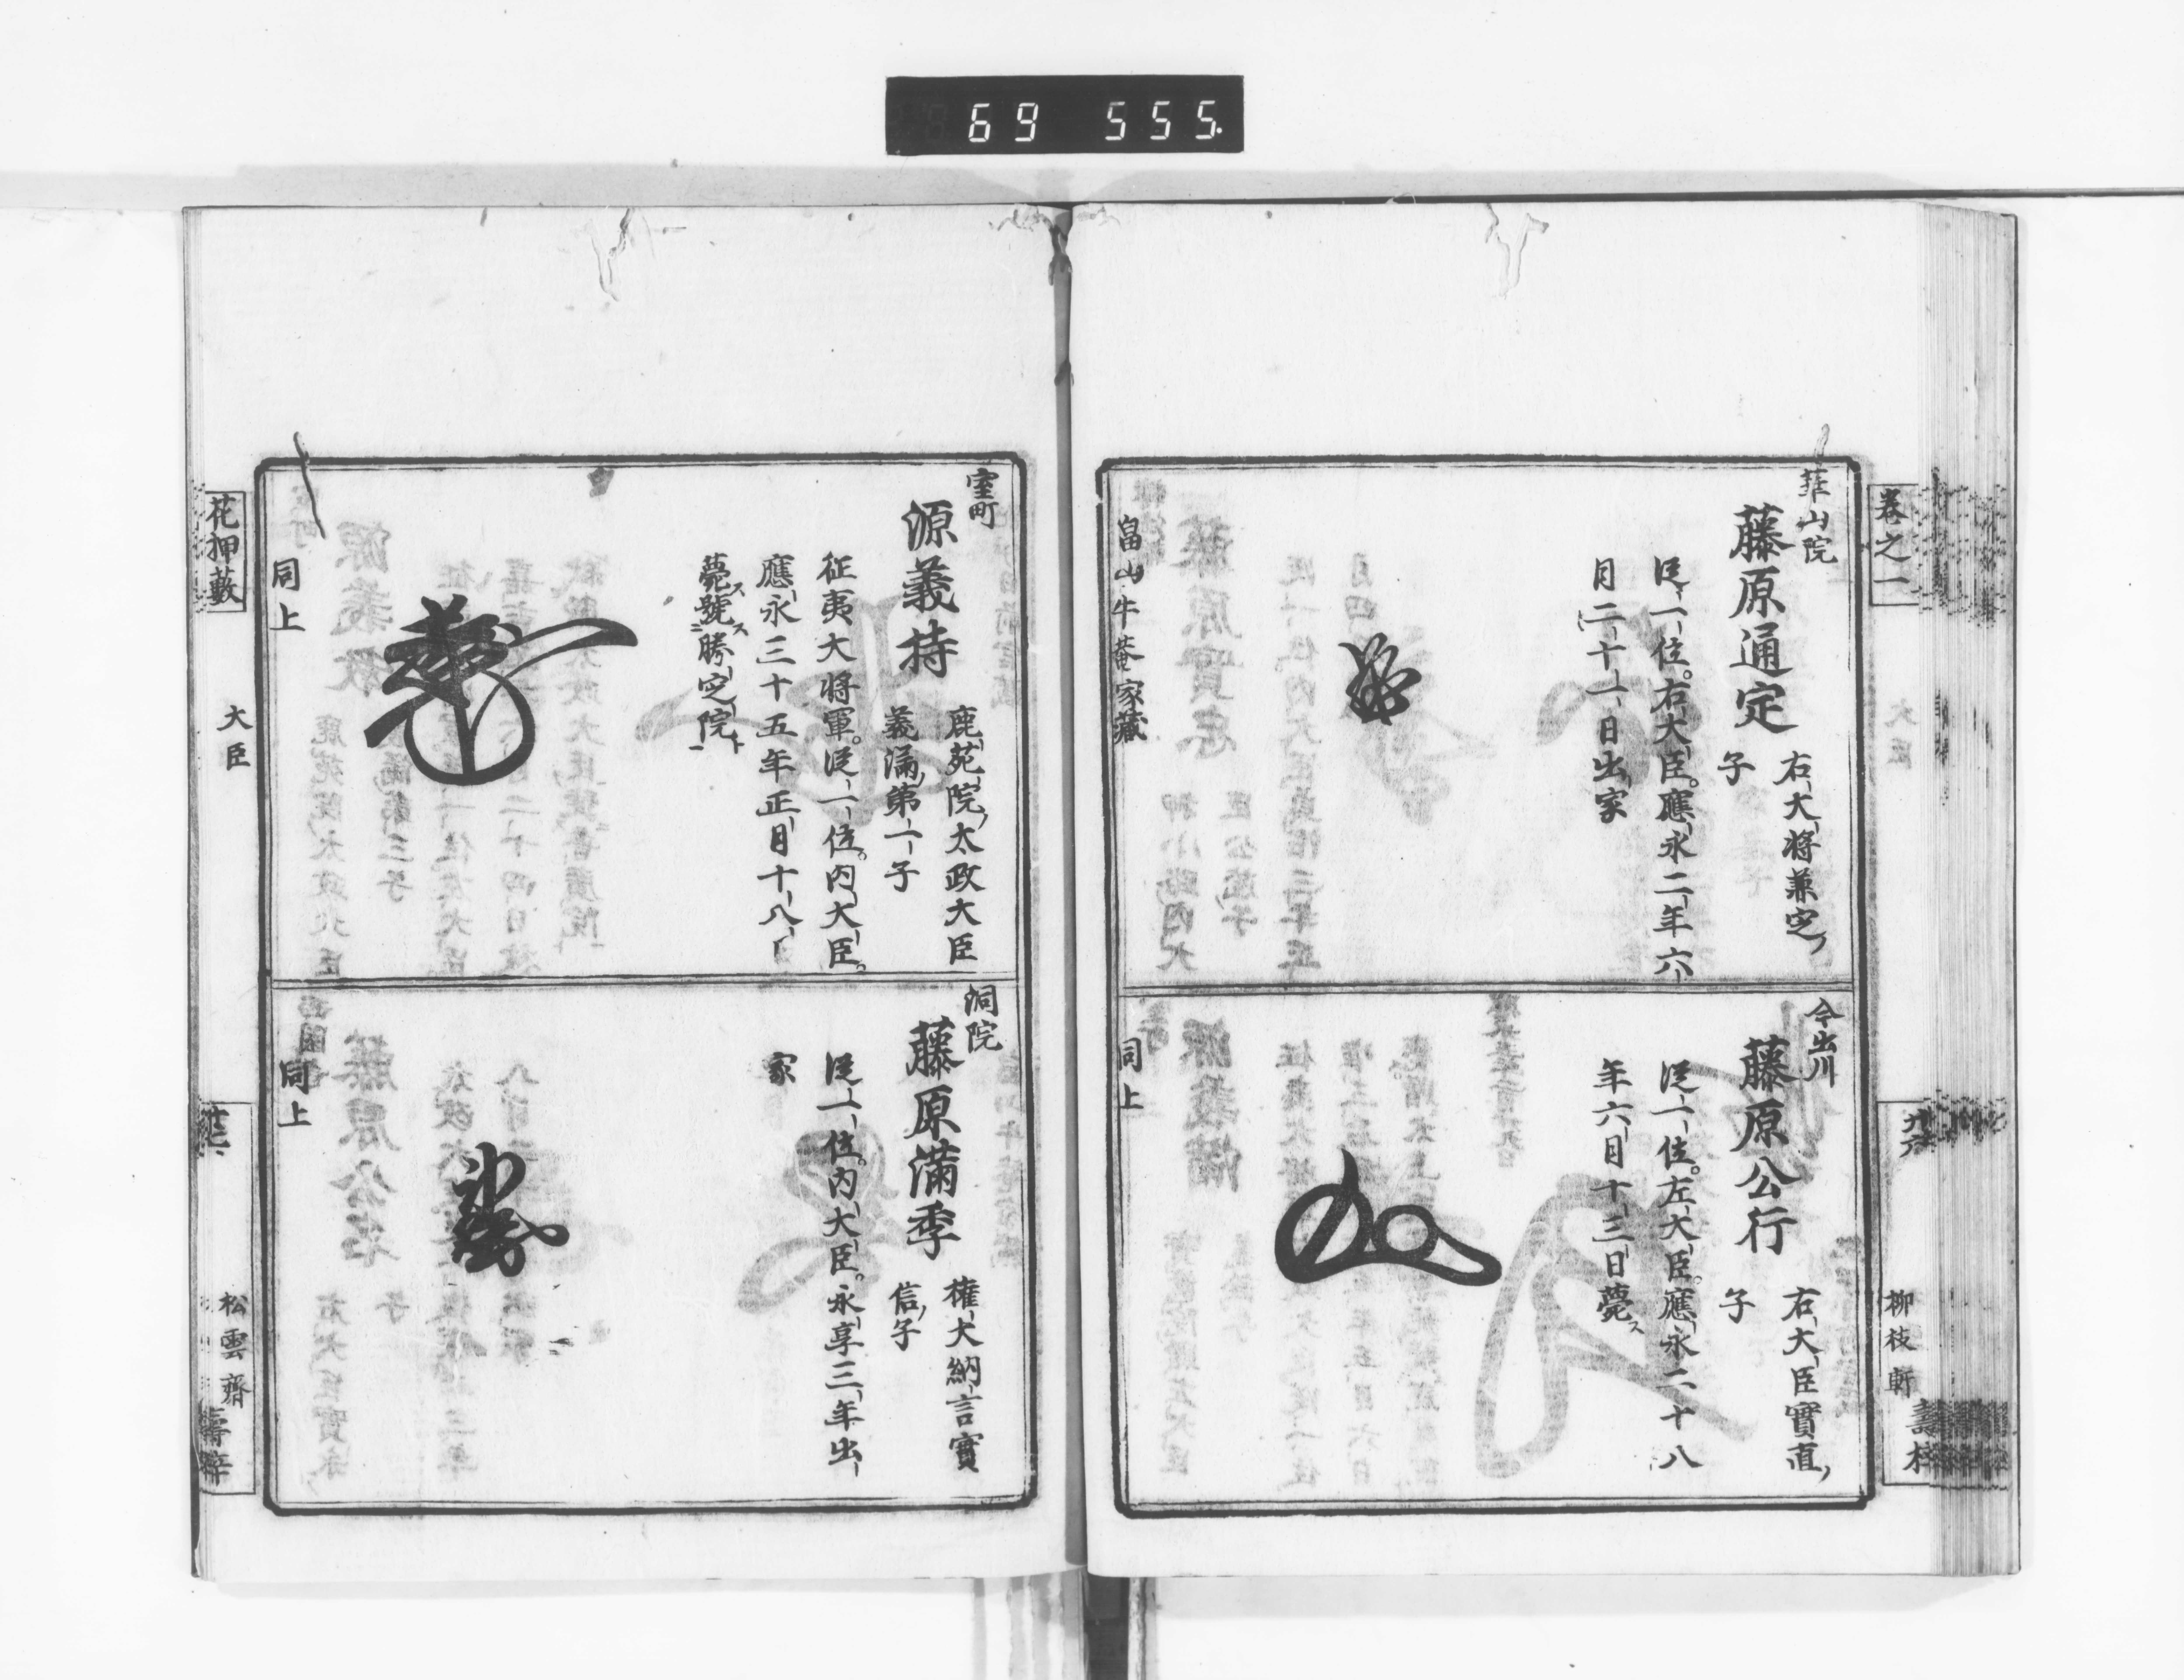 69 555.
卷之一
柳枝軒
華山院
藤原通定
右大將兼定
子
従一位。右大臣。應永二年六
月二十一日出家
畠山牛菴家藏
今出川
藤原公行
右大臣實直
子
従一位。左大臣。應永二十八
年六月十三日薨ス
同上
室町
源義持
鹿苑院太政大臣
義満第一子
征夷大將軍。従一位。内大臣。
應永三十五年正月十八日
薨ス號ス勝定院ト
同上
洞院
藤原滿季
権大納言實
信子
従一位。内大臣。永享三年出
家
同上
花押藪
大臣
松雲齋